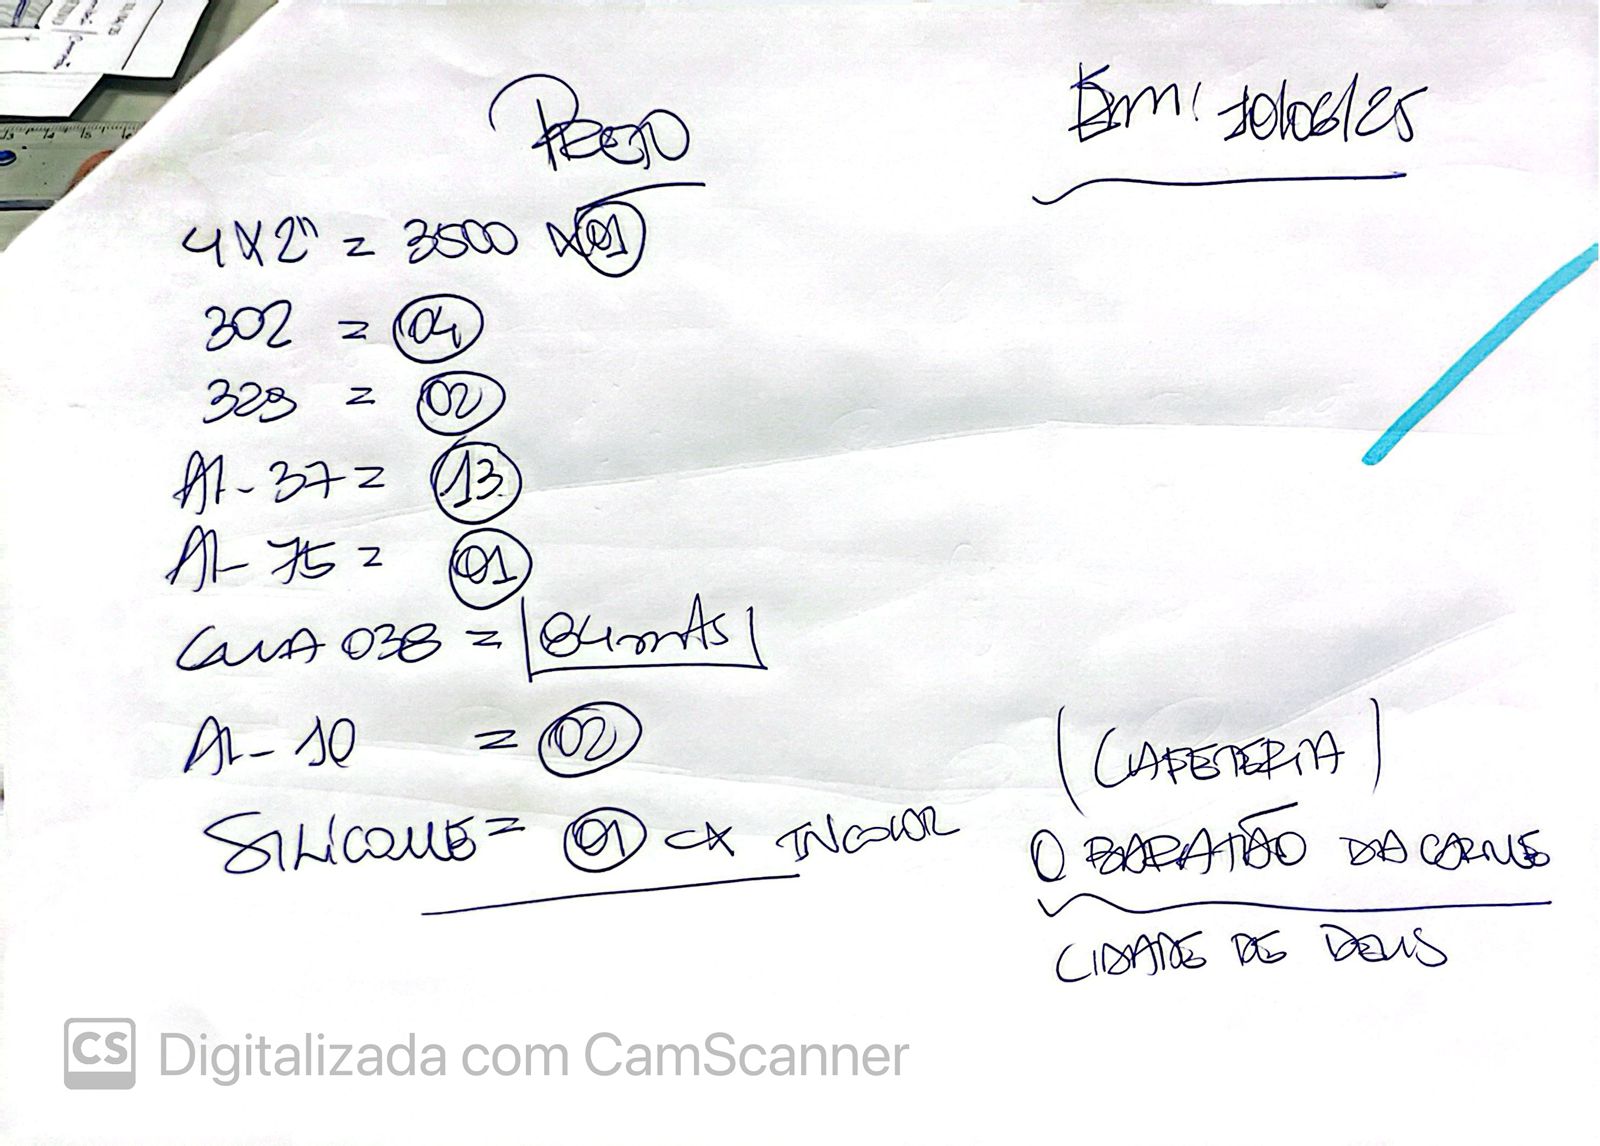 PRETO
Em: 10/06/25
4x2" = 3500 x 01
302 = 04
329 = 02
Al-37 = 13
Al-75 = 01
GUIA 038 = 84mts
Al-10 = 02
(CAFETERIA)
SILICONE = 01 CX INCOLOR
O BARATÃO DA CARNE
CIDADE DE DEUS
CS Digitalizada com CamScanner